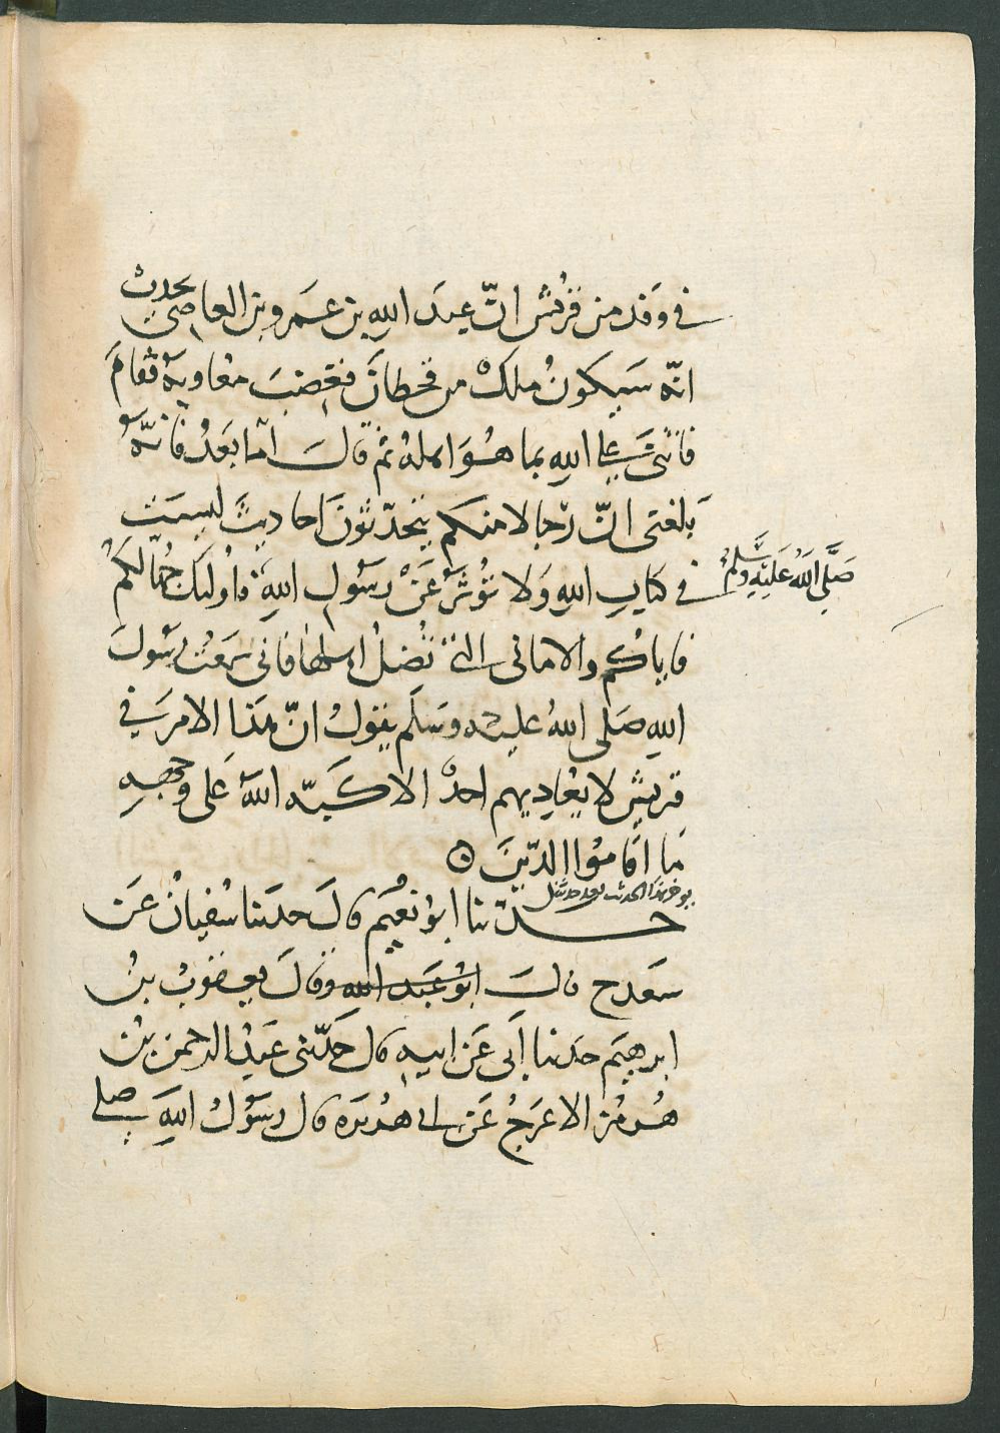 في وفد من قريش انّ عبدَ الله بن عَمرو بن العاصي يحدث
انّه سَيكونُ ملكٌ من قحطانَ فغضبَ معاوية فقامَ
فاثنى على الله بما هُوَ اهله ثمّ قالَ امّا بَعدُ فانّه
بَلغني انّ رجالا منكم يتحدّثونَ احاديثَ ليست
في كتابِ الله وَلا تؤثرُ عَنْ رسَولِ اللهِ فاولئك جُهّالكُم
صَلَّى اللهُ عَلَيْهِ وَسَلَّمَ
فاياكم والاماني التي تُضلُ اهلها فاني سَمعتُ رسَول
اللهِ صَلى اللهُ عليه وسَلم يقولُ انّ هَذا الامرَ في
قريشٍ لا يُعَادِيهم احدٌ الا كَبّه اللهُ عَلى وجههِ
مَا اقَامُوا الدّينَ ۝
يوخر هذا الحديث بعد حديثنا
حدّثنا ابو نُعَيم قالَ حدثنا سُفيانُ عَن
سَعد ح قالَ ابُو عَبد الله وقالَ يعقوبُ بنُ
ابرهيَم حدثنا أبي عَن ابيهِ قال حَدّثني عَبدُ الرحمن بنُ
هُرمُز الاعرَجُ عَن ابي هُريَرة قال رسَولُ اللهِ صلى